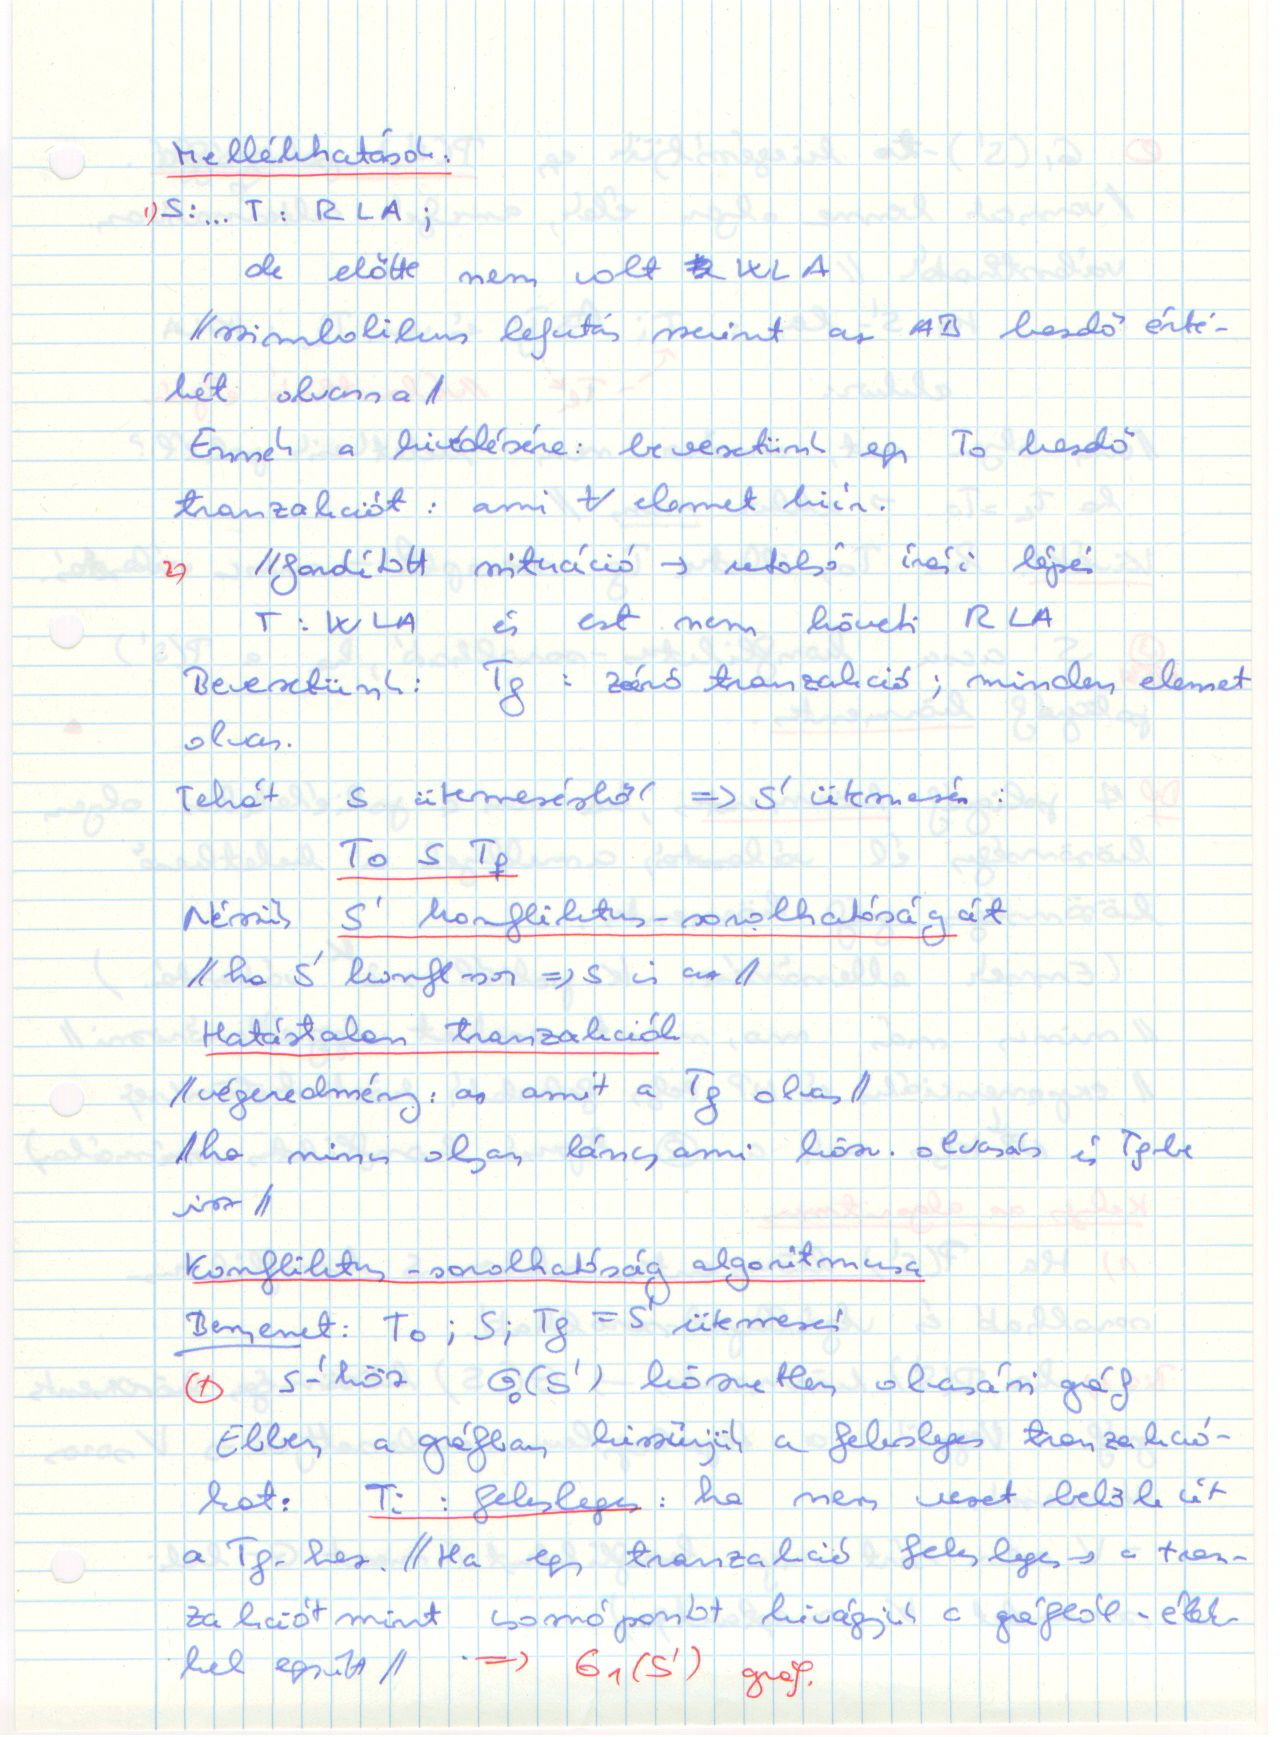 Mellékhatások:
1) S:... T: RLA;
de előtte nem volt WLA
//szimbolikus lefutás szerint az AB kezdő érté-
két olvassa//
Ennek a kivédésére: bevezetünk egy To kezdő
tranzakciót: ami ∀ elemet kiír.
2) //fordított szituáció → utolsó írási lépés
T: WLA és ezt nem követi RLA
Bevezetünk: Tf : záró tranzakció; minden elemet
olvas.
Tehát S ütemezésből => S' ütemezés:
To S Tf
Nézzük S' konfliktus-sorolhatóságát
//ha S' konfl-sor => S is az//
Hatástalan tranzakciók
//végeredmény: az amit a Tf olvas//
//ha nincs olyan lánc, ami köv. olvasás és Tf-be
visz//
Konfliktus-sorolhatóság algoritmusa
Bemenet: To; S; Tf = S' ütemezés
(1) S'-höz Go(S') közvetlen olvasási gráf
Ebben a gráfban kiszűrjük a felesleges tranzakció-
kat: Ti : felesleges: ha nem vezet belőle út
a Tf-hez. //Ha egy tranzakció felesleges → a tran-
zakciót mint csomópontot kivágjuk a gráfból - élek-
kel együtt// => G1(S') gráf.